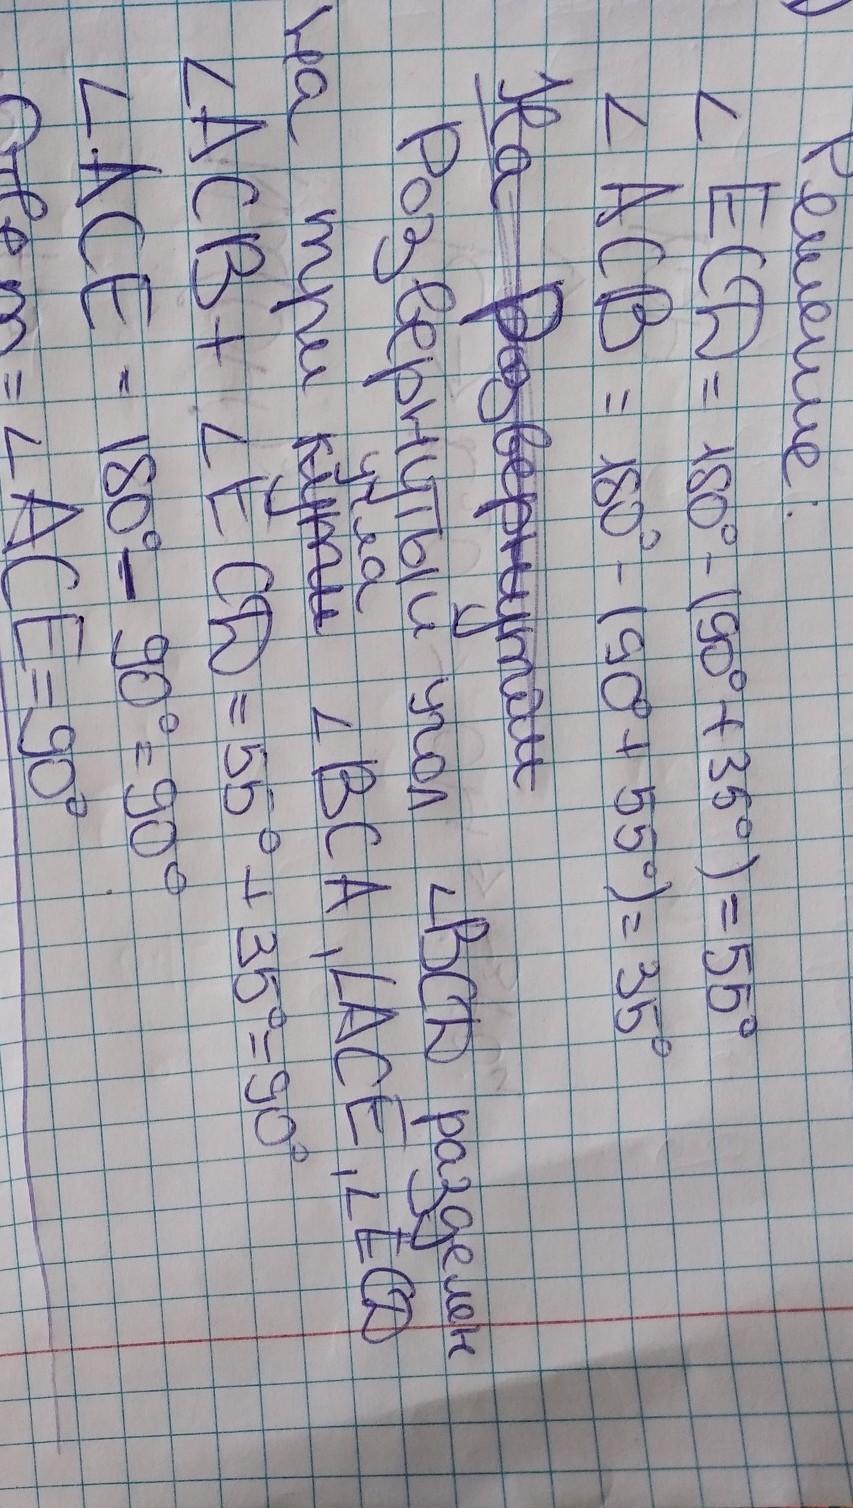 Решение:
∠ ECD = 180° - (90° + 35°) = 55°
∠ ACB = 180° - (90° + 55°) = 35°
Розвернутый угол ∠BCD разделен
на три угла ∠BCA, ∠ACE, ∠ECD
∠ACB + ∠ECD = 55° + 35° = 90°
∠ACE = 180° - 90° = 90°
Ответ = ∠ACE = 90°